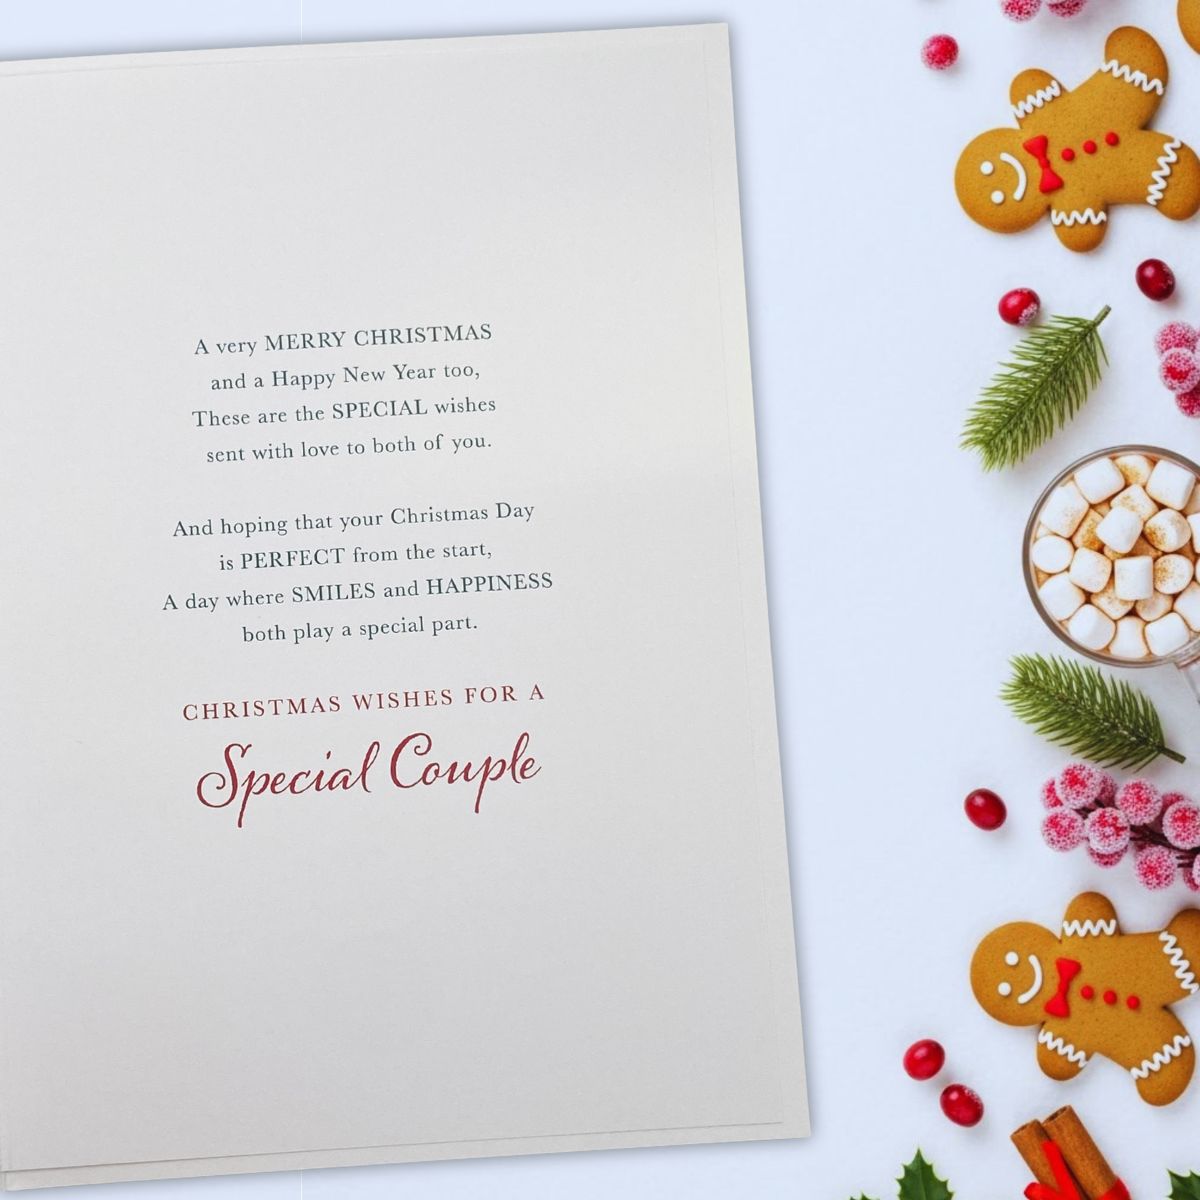 A very MERRY CHRISTMAS
and a Happy New Year too,
These are the SPECIAL wishes
sent with love to both of you.
And hoping that your Christmas Day
is PERFECT from the start,
A day where SMILES and HAPPINESS
both play a special part.
CHRISTMAS WISHES FOR A
Special Couple